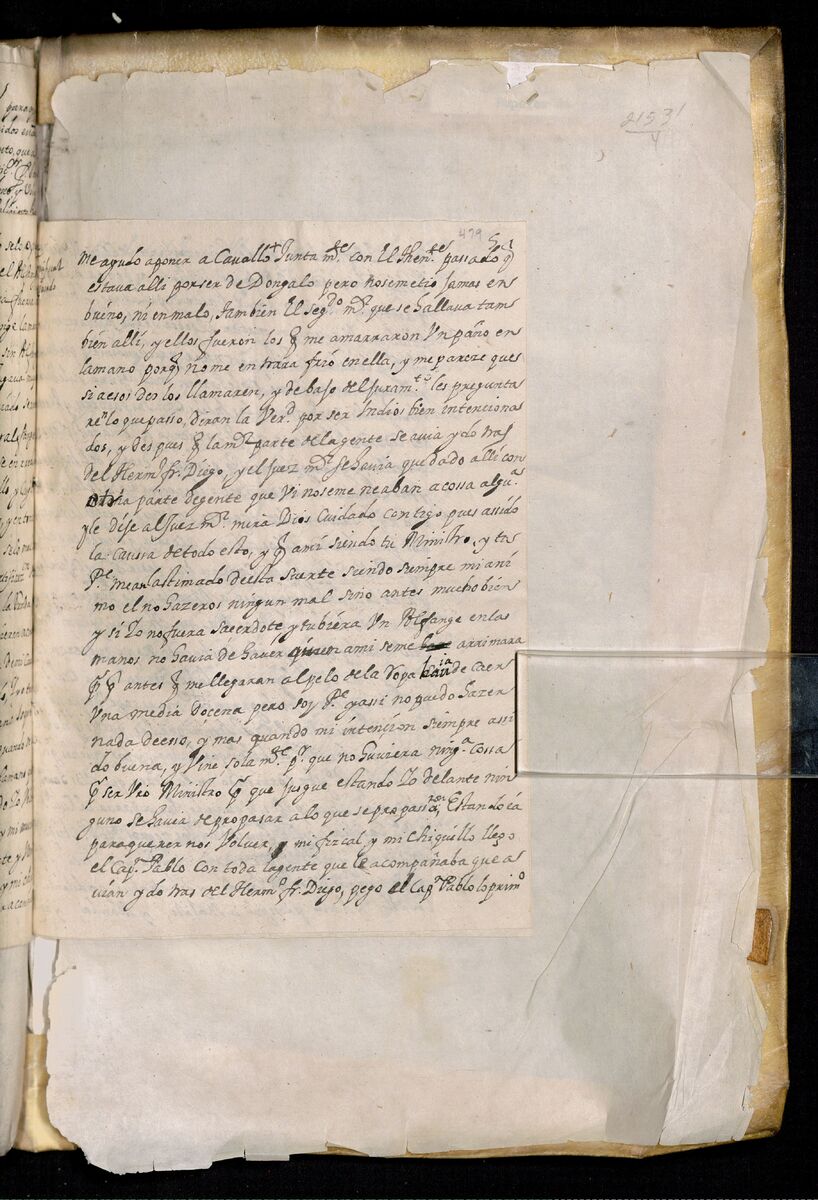 21531
4
479
me ayudo aponer a Cavallo Junta m.te con El Then.te passado q̃
estava alli por ser de Dongalo pero nosemetio jamas en
bueno, ni en malo, tambien El seg.do m.r que se hallava tam
bien alli, y ellos fueron los q̃ me amarraron Vn paño en
lamano porq̃ no me entrara frio enella, y me pareze que s
si aesos dos los llamaren, y debajo del juram.to les pregunta
ren lo que passo, diran la Verd. por ser Indios bien intenciona
dos, y des pues q̃ la m.r parte dela gente se avia ydo tras
del Herm.o fr. Diego, y el Juez m.r se havia quedado alli con
otra parte de gente que Vi noseme neaban a cossa algu.a
yle dije al Juez m.r mira Dios Cuidado contigo que as sido
la Caussa de todo esto, y q̃ ami siendo tu Ministro, y tu
P.e mean lastimado deesta suerte siendo siempre mi ani
mo el no hazeros ningun mal sino antes mucho bien
y si Yo no fuera Sacerdote y tubiera Vn Alfange en las
manos, no havia de haver quien ami seme arrimara
q̃ antes q̃ me llegaran al pelo de la ropa havia de caer
Vna media docena pero soy P.e yassi no puedo hazer
nada deesso, y mas quando mi intencion siempre assi
do buena, y Vine sola m.te p.r que no huviera ning.a cossa
q̃ ser Vro Ministro q̃ que jusgue estando Yo delante nin
guno se havia de propasar a lo que se propassaron, Estando ia
para querer nos Volver, y mi fizcal, y mi chiquillo llego
el Cap.n Pablo con toda la gente que le acompañaba que a s
vian ydo tras del Herm.o fr. Diego, pego el Cap.n Pablo lo prim.o